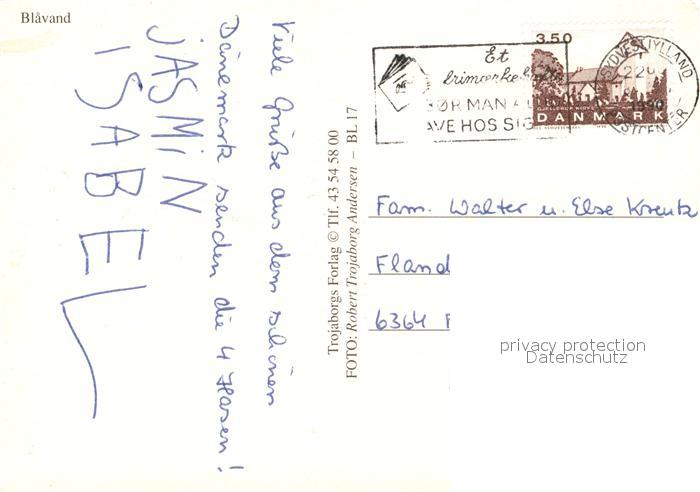 Blåvand
Viele Grüße aus dem schönen
Dänemark senden die 4 Hasen!
JASMIN
ISABEL
Trojaborgs Forlag © Tlf. 43 54 58 00
FOTO: Robert Trojaborg Andersen – BL 17
3.50
DANMARK
Et
SYDVESTJYLLAND
1990
POSTCENTER
BØR MAN A
AVE HOS SIG
Fam. Walter u. Else Kreutz
Fland
6364
privacy protection
Datenschutz